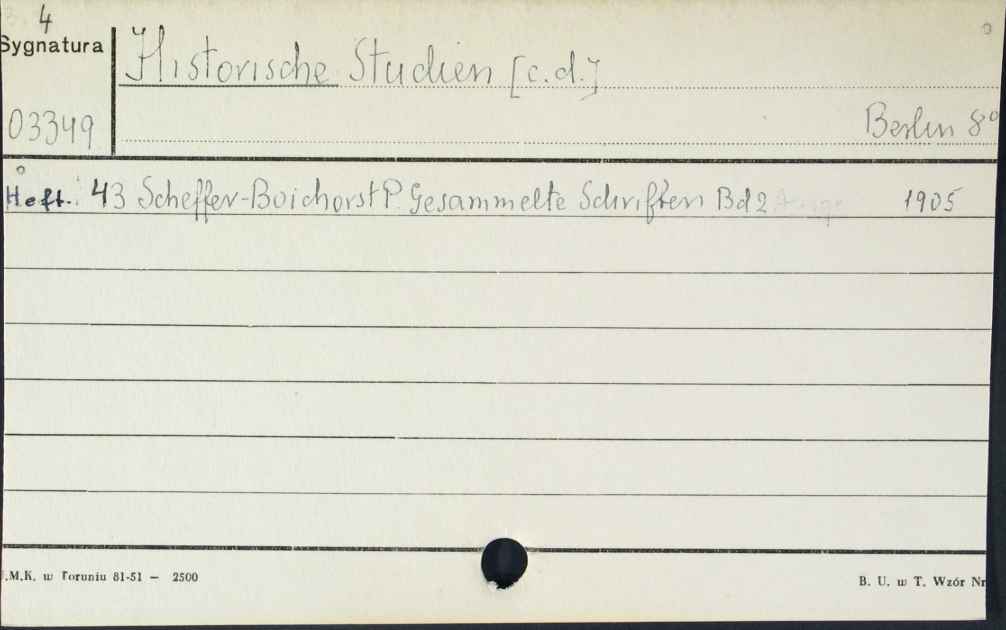 4
Sygnatura
Historische Studien [c.d.]
03349
Berlin 8°
Heft. 43 Scheffer-Boichorst P. Gesammelte Schriften Bd 2 1905
.M.K. w Toruniu 81-51 — 2500
B. U. w T. Wzór Nr